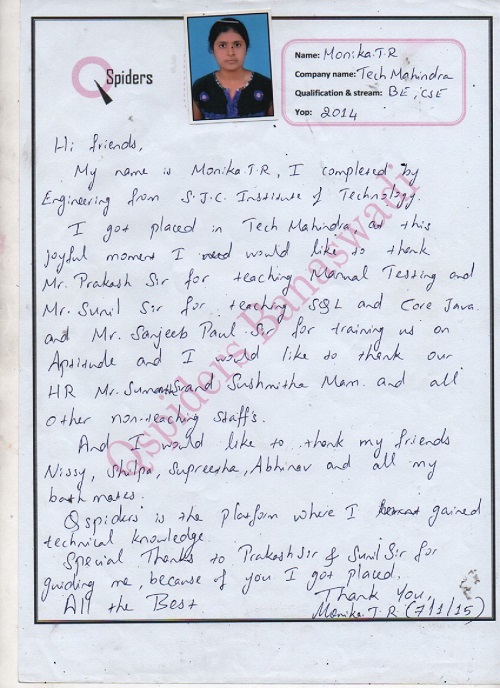 QSpiders
Name: Monika.T.R
Company name: Tech Mahindra
Qualification & stream: BE, CSE
Yop: 2014
Hi friends,
My name is Monika T.R, I completed by
Engineering from S.J.C. Institute of Technology.
I got placed in Tech Mahindra, at this
joyful moment I would like to thank
Mr. Prakash Sir for teaching Manual Testing and
Mr. Sunil Sir for teaching SQL and Core Java.
and Mr. Sanjeeb Paul Sir for training us on
Aptitude and I would like to thank our
HR Mr. Sumanth Sir and Sushmitha Mam. and all
other non-teaching staff's.
And I would like to thank my friends
Nissy, Shilpa, Supreetha, Abhinav and all my
batch mates.
Qspiders is the platform where I gained
technical knowledge.
Special Thanks to Prakash Sir & Sunil Sir for
guiding me, because of you I got placed.
All the Best
Thank You,
Monika.T.R (7/1/15)
Qspiders Banaswadi